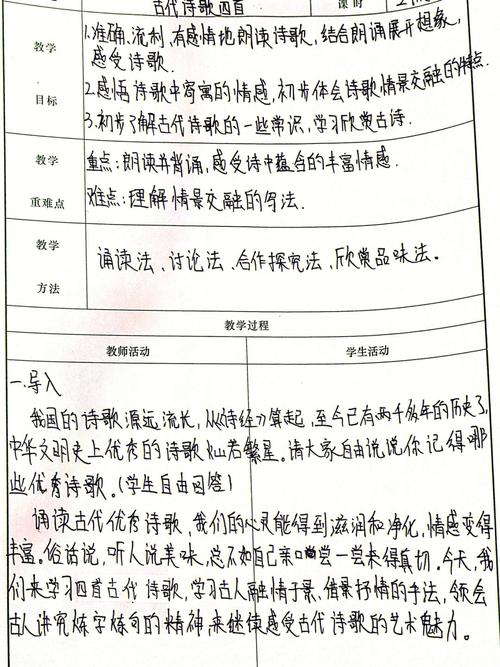 古代诗歌四首 课时
教学
目标
1.准确、流利、有感情地朗读诗歌,结合朗诵展开想象,
感受诗歌.
2.感悟诗歌中寄寓的情感,初步体会诗歌情景交融的特点.
3.初步了解古代诗歌的一些常识,学习欣赏古诗.
教学
重难点
重点:朗读并背诵,感受诗中蕴含的丰富情感.
难点:理解情景交融的写法.
教学
方法
诵读法、讨论法、合作探究法、欣赏品味法。
教学过程
教师活动 学生活动
一.导入
我国的诗歌源远流长,从《诗经》算起,至今已有两千多年的历史了,
中华文明史上优秀的诗歌灿若繁星。请大家自由说说你记得哪
些优秀诗歌。(学生自由回答)
诵读古代优秀诗歌,我们的心灵能得到滋润和净化,情感变得
丰富。俗话说,听人说美味,总不如自己亲口尝一尝来得真切。今天,我
们来学习四首古代诗歌,学习古人融情于景、借景抒情的手法,领会
古人讲究炼字炼句的精神,来继续感受古代诗歌的艺术魅力。